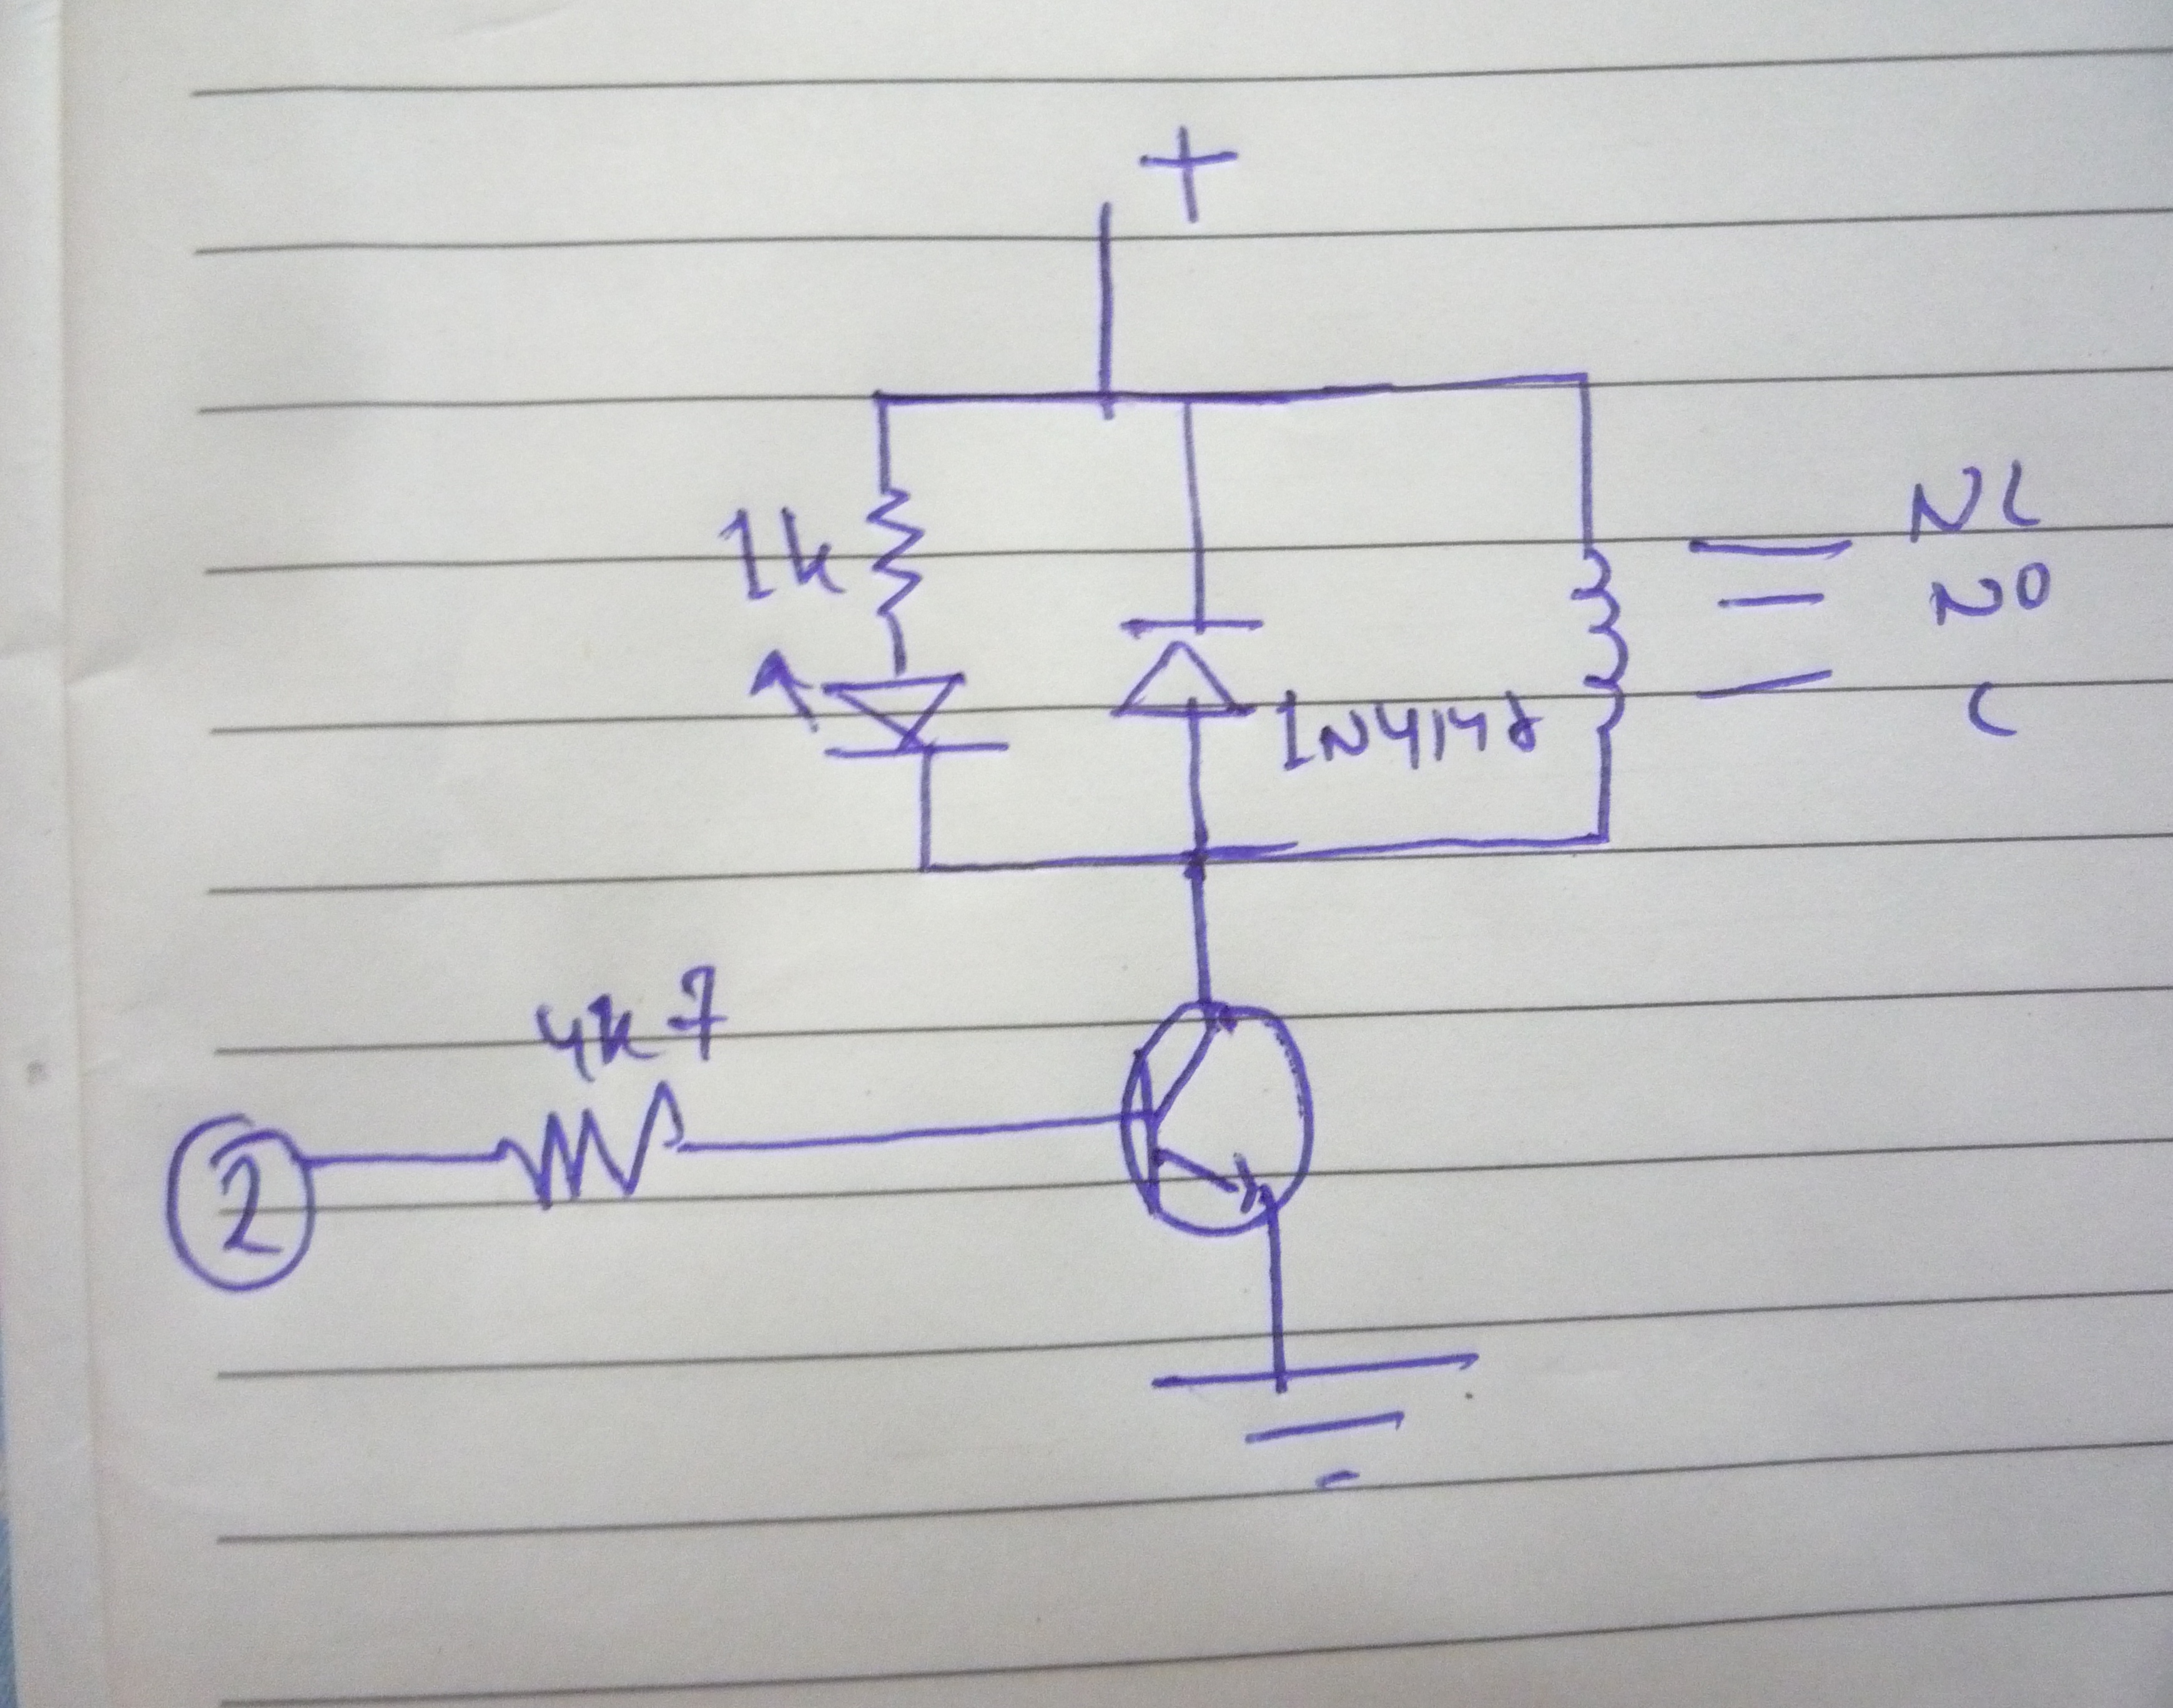 +
NC
1k
NO
1N4148
C
4k7
2